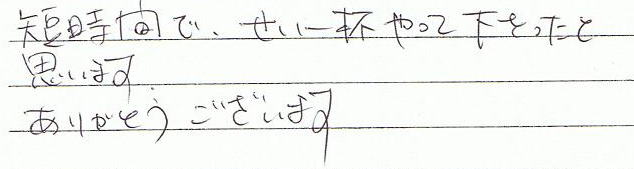 短時間で、せい一杯やって下さったと
思います
ありがとうございます